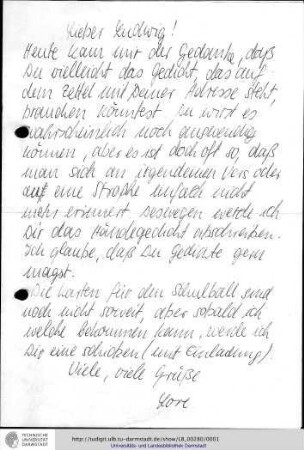 Lieber Ludwig!
Heute kam mir der Gedanke, daß
Du vielleicht das Gedicht, das auf
dem Zettel mit Deiner Adresse steht,
brauchen könntest. Du wirst es
wahrscheinlich noch auswendig
können, aber es ist doch oft so, daß
man sich an irgendeinen Vers oder
auf eine Strophe einfach nicht
mehr erinnert. Deswegen werde ich
Dir das Händegedicht abschreiben.
Ich glaube, daß Du Gedichte gern
magst.
Die Karten für den Schulball sind
noch nicht soweit, aber sobald ich
welche bekommen kann, werde ich
Dir eine schicken (mit Einladung)
Viele, viele Grüße
Lore
TECHNISCHE
UNIVERSITÄT
DARMSTADT
http://tudigit.ulb.tu-darmstadt.de/show/LB_00280/0001
Universitäts- und Landesbibliothek Darmstadt